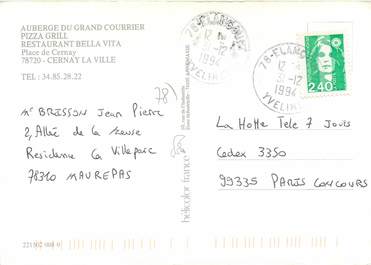 AUBERGE DU GRAND COURRIER
PIZZA GRILL
RESTAURANT BELLA VITA
Place de Cernay
78720 - CERNAY LA VILLE
TEL : 34.85.28.22
78)
Mr BRISSON Jean Pierre
2, Allée de la Meuse
Residence La Villeparc
78310 MAUREPAS
221502 008 0
helicolor france
78-ELANCOURT
31-12
1994
YVELINES
78-ELANCOURT
31-12
1994
YVELINES
2,40
La Hotte Tele 7 Jours
Cedex 3350
99335 PARIS CONCOURS